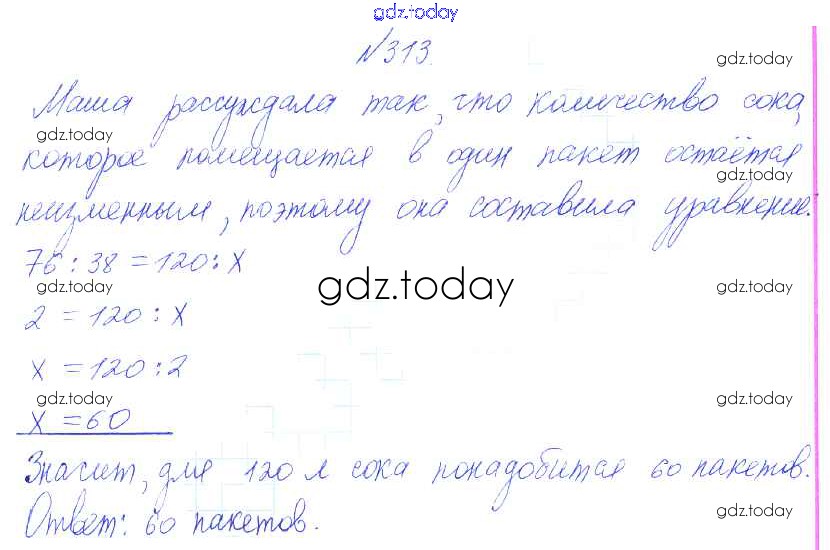 gdz.today
№313.
gdz.today
Маша рассуждала так, что количество сока,
gdz.today
которое помещается в один пакет остаётся
gdz.today
неизменным, поэтому она составила уравнение.
76 : 38 = 120 : x
gdz.today gdz.today gdz.today
2 = 120 : x
x = 120 : 2
gdz.today gdz.today
x = 60
Значит, для 120 л сока понадобится 60 пакетов.
gdz.today
Ответ: 60 пакетов.